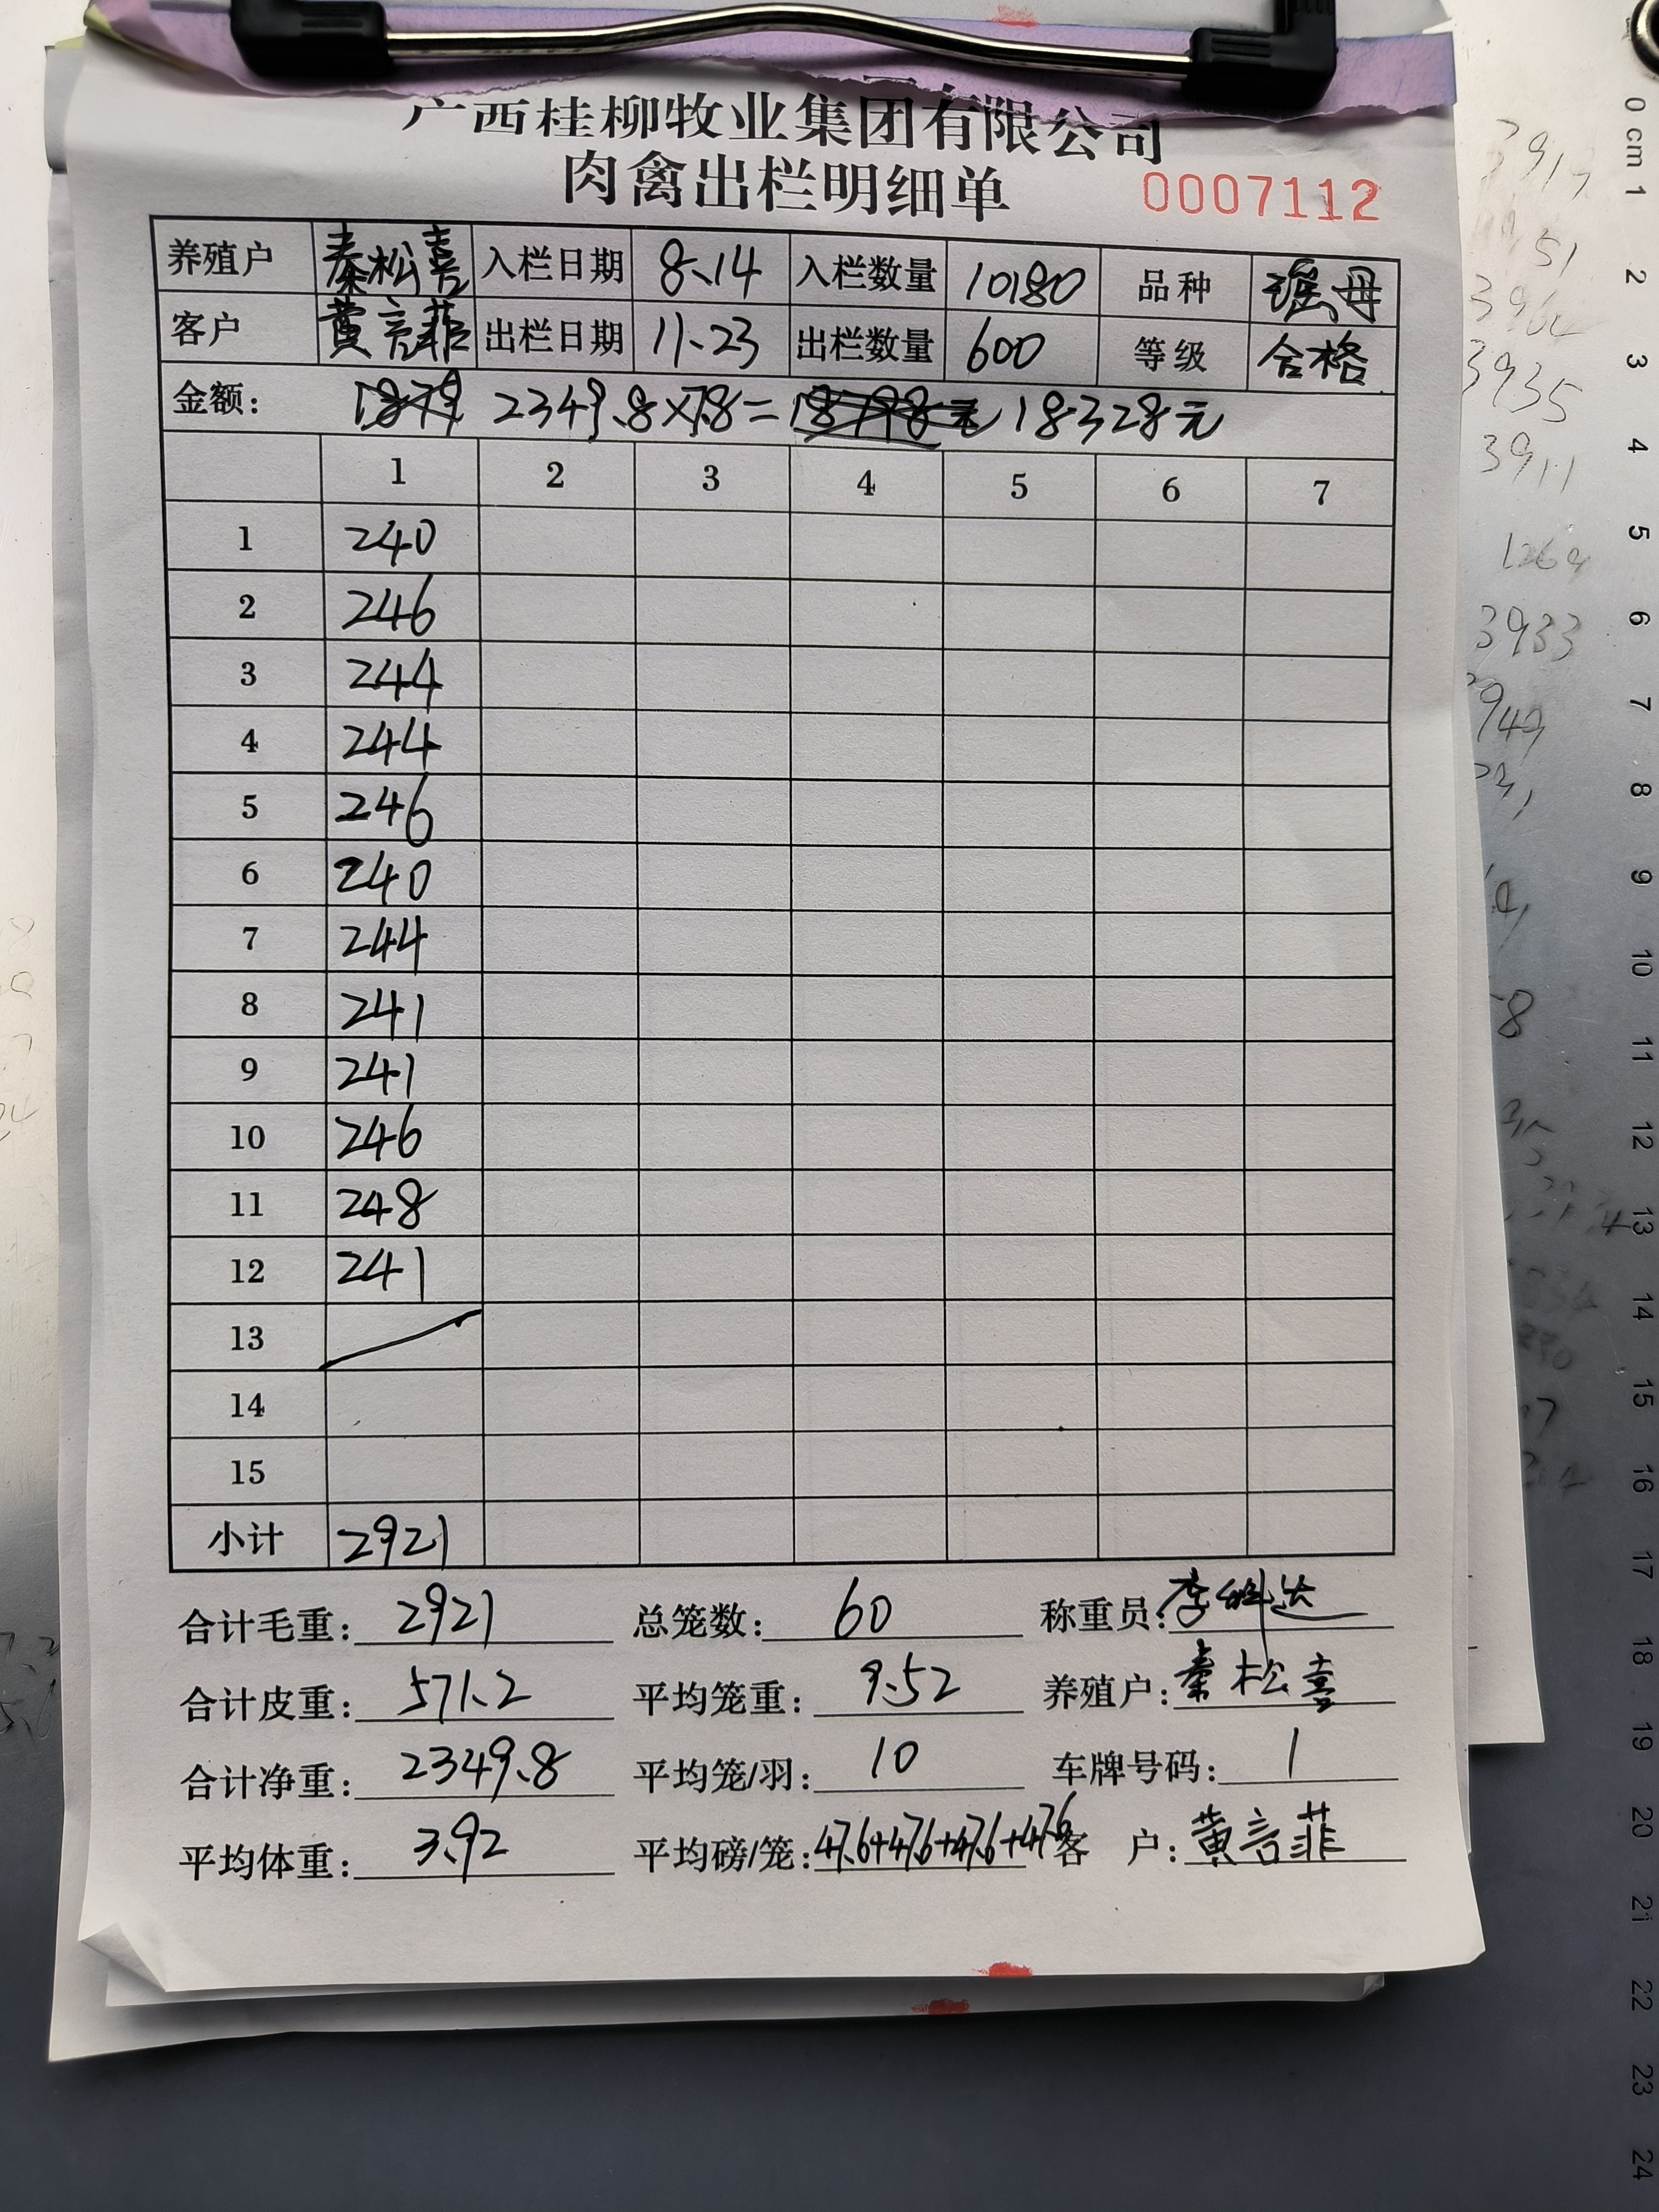 广西桂柳牧业集团有限公司
肉禽出栏明细单 0007112
养殖户 秦松喜 入栏日期 8.14 入栏数量 10180 品种 瑶母
客户 黄言菲 出栏日期 11.23 出栏数量 600 等级 合格
金额: 2349.8×7.8= 18328元
1 2 3 4 5 6 7
1 240
2 246
3 244
4 244
5 246
6 240
7 244
8 241
9 241
10 246
11 248
12 241
13
14
15
小计 2921
合计毛重: 2921 总笼数: 60 称重员: 李
合计皮重: 571.2 平均笼重: 9.52 养殖户: 秦松喜
合计净重: 2349.8 平均笼/羽: 10 车牌号码: 1
平均体重: 3.92 平均磅/笼: 47.6+47.6+47.6+47.6 客户: 黄言菲
0 cm 1 2 3 4 5 6 7 8 9 10 11 12 13 14 15 16 17 18 19 20 21 22 23 24
3935
3911
3933